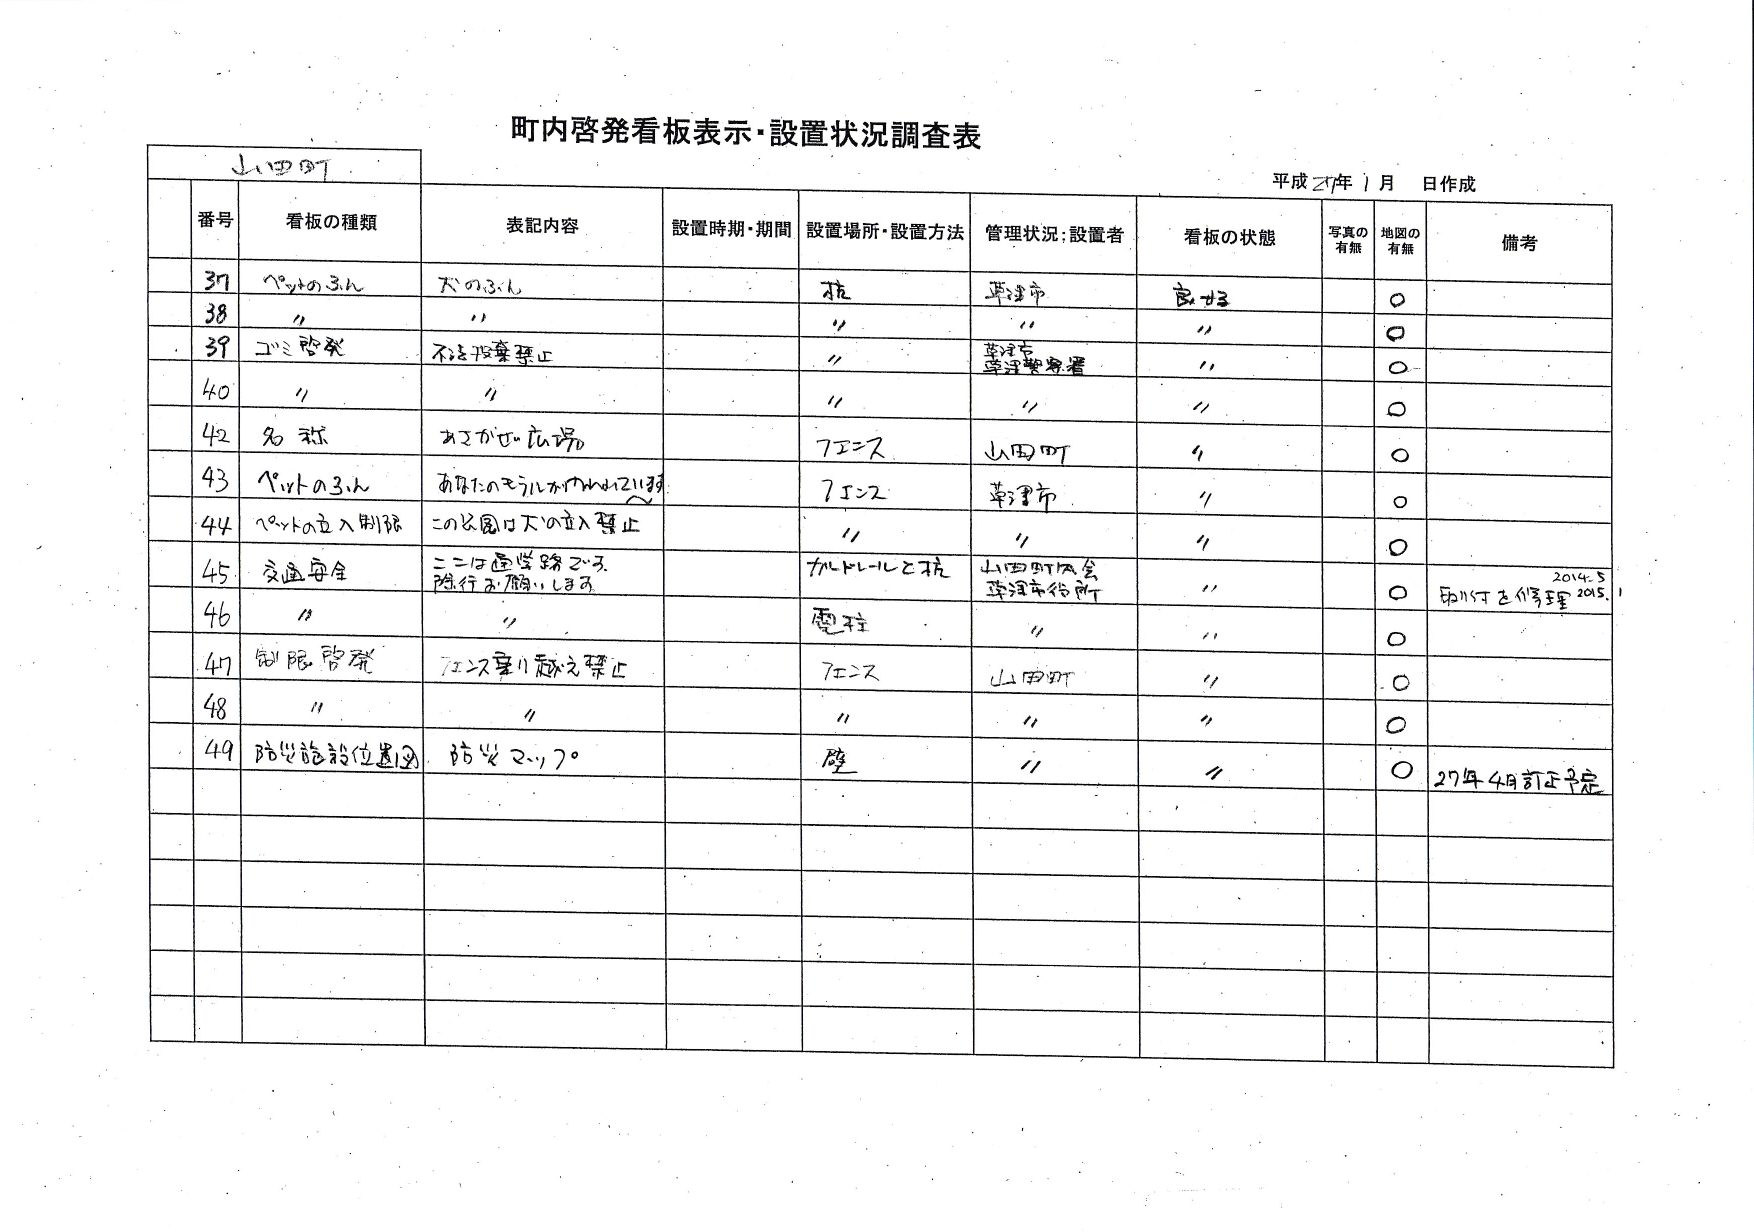 町内啓発看板表示・設置状況調査表
山田町
平成27年1月 日作成
番号 看板の種類 表記内容 設置時期・期間 設置場所・設置方法 管理状況;設置者 看板の状態 写真の有無 地図の有無 備考
37 ペットのふん 犬のふん 杭 草津市 良好 ○
38 〃 〃 〃 〃 〃 ○
39 ゴミ啓発 不法投棄禁止 〃 草津市 草津警察署 〃 ○
40 〃 〃 〃 〃 〃 ○
42 名称 あさかぜ広場 フェンス 山田町 〃 ○
43 ペットのふん あなたのモラルが問われています フェンス 草津市 〃 ○
44 ペットの立入制限 この公園は犬の立入禁止 〃 〃 〃 ○
45 交通安全 ここは通学路です。 除行お願いします ガードレールと杭 山田町内会 草津市役所 〃 ○ 2014.5 取付を修理 2015.1
46 〃 〃 電柱 〃 〃 ○
47 制限啓発 フェンス乗り越え禁止 フェンス 山田町 〃 ○
48 〃 〃 〃 〃 〃 ○
49 防災施設位置図 防災マップ 壁 〃 〃 ○ 27年4月訂正予定